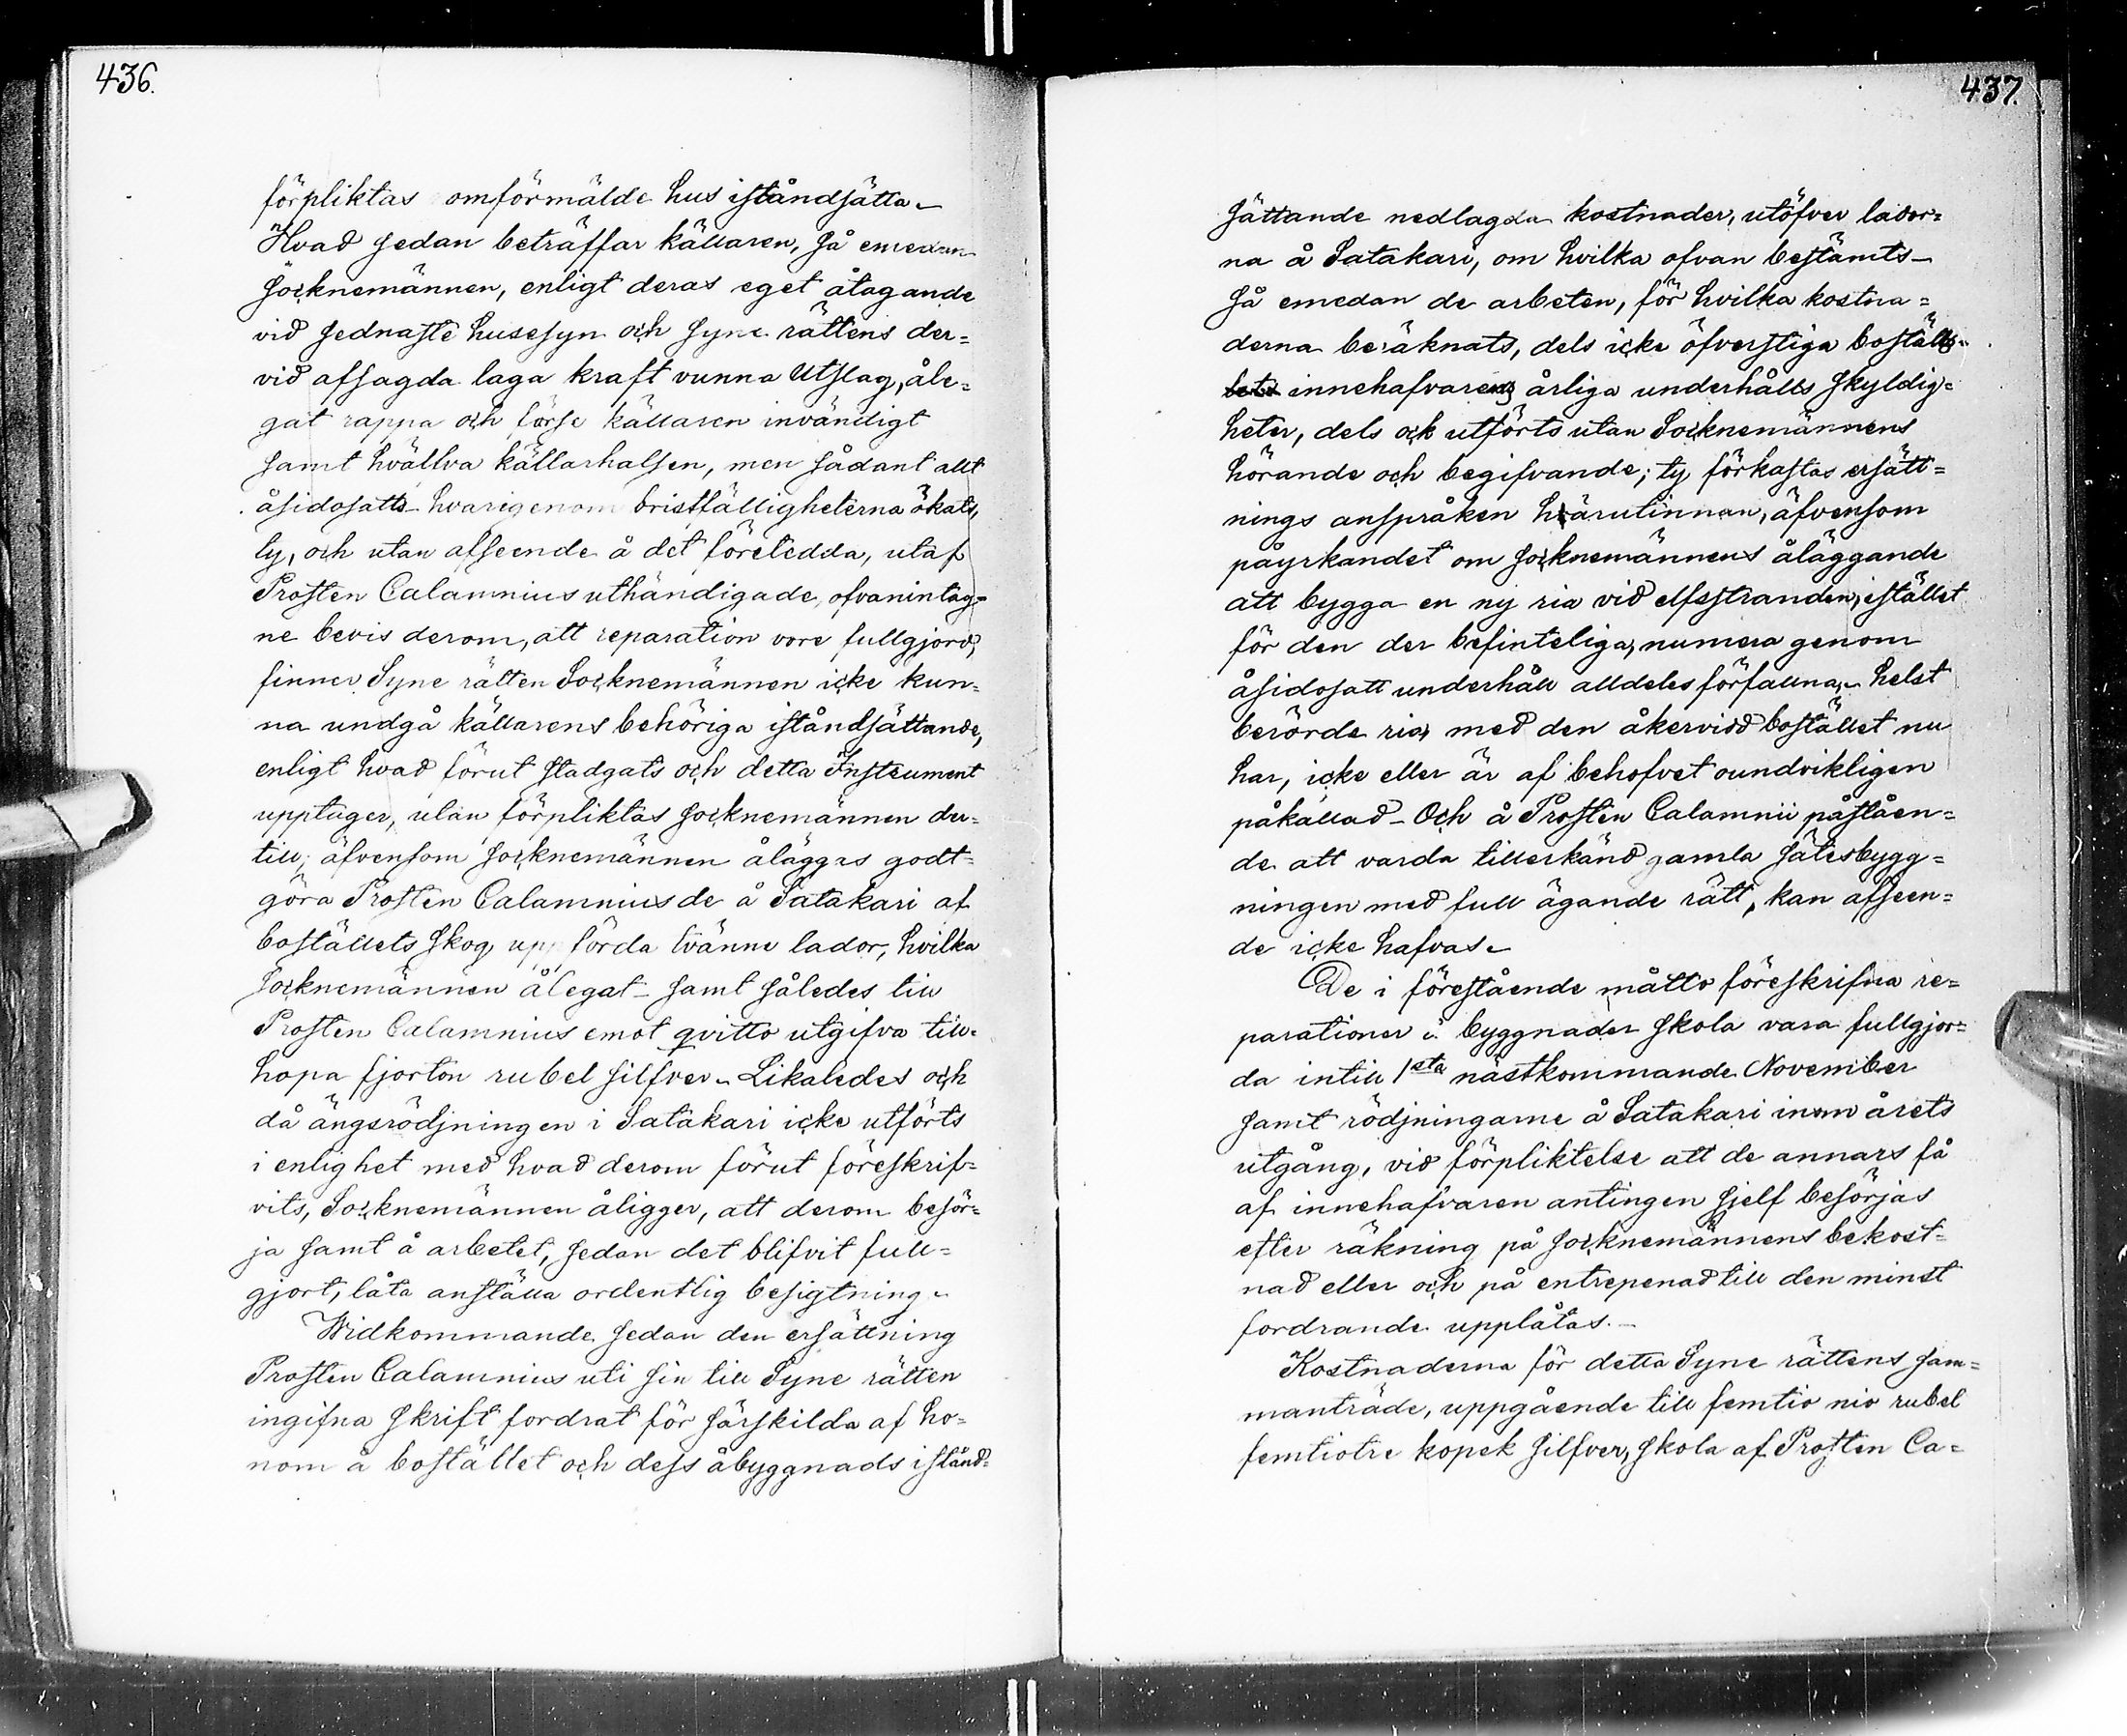 436.
förpliktas omförmälde hus iståndsätta.
Hvad sedan beträffar källaren, så emedan
Socknemännen, enligt deras eget åtagande
vid sednaste husesyn och syne rättens der=
vid afsagda laga kraft vunna Utslag, åle=
gat rappa och förse källaren invändigt
samt hvälfva källarhalsen, men sådant allt
åsidosatts hvarigenom bristfälligheterna ökats,
ty, och utan afseende å det företedda, utaf
Prosten Calamnius uthändigade, ofvanintag=
ne bevis derom, att reparation vore fullgjord,
finner Syne rätten Socknemännen icke kun=
na undgå källarens behöriga iståndsättande,
enligt hvad förut stadgats och detta Instrument
upptager, utan förpliktas socknemännen der=
till; äfvensom socknemännen åläggas godt=
göra Prosten Calamnius de å Satakari af
boställets skog uppförda tvänne lador, hvilka
socknemännen ålegat samt således till
Prosten Calamnius emot qvitto utgifva till=
hopa fjorton rubel silfver. Likaledes och
då ängsrödjningen i Satakari icke utförts
i enlighet med hvad derom förut föreskrif=
vits, Socknemännen åligger, att derom besör=
ja samt å arbetet, sedan det blifvit full=
gjort, låta anställa ordentlig besigtning.
Widkommande sedan den ersättning
Prosten Calamnius uti sin till Syne rätten
ingifna skrift fordrat för särskilda af ho=
nom å bostället och dess åbyggnads istånd=
437.
sättande nedlagda kostnader, utöfver lador=
na å Satakari, om hvilka ofvan bestämts
Så emedan de arbeten, för hvilka kostna=
derna beräknats, dels icke öfverstiga boställs=
innehafvarens årliga underhålls skyldig=
heter, dels ock utförts utan Socknemännens
hörande och begifvande; ty förkastas ersätt=
nings anspråken härutinnan, äfvensom
påyrkandet om socknemännens åläggande
att bygga en ny ria vid elfsstranden, istället
för den der befinteliga, numera genom
åsidosatt underhåll alldeles förfallna, helst
berörde ria, med den åkervidd bostället nu
har, icke eller är af behofvet oundvikligen
påkallad Och å Prosten Calamnii påståen=
de att varda tillerkänd gamla sätesbygg=
ningen med full ägande rätt, kan afseen=
de icke hafvas.
De i förestående måtto föreskrifna re=
parationer i byggnader skola vara fullgjor=
da intill 1sta nästkommande November
samt rödjningarne å Satakari inom årets
utgång, vid förpliktelse att de annars få
af innehafvaren antingen sjelf besörjas
efter räkning på socknemännens bekost=
nad eller och på entrepenad till den minst
fordrande upplåtas.
Kostnaderna för detta Syne rättens sam=
manträde, uppgående till femtio nio rubel
femtiotre kopek silfver, skola af Prosten Ca=